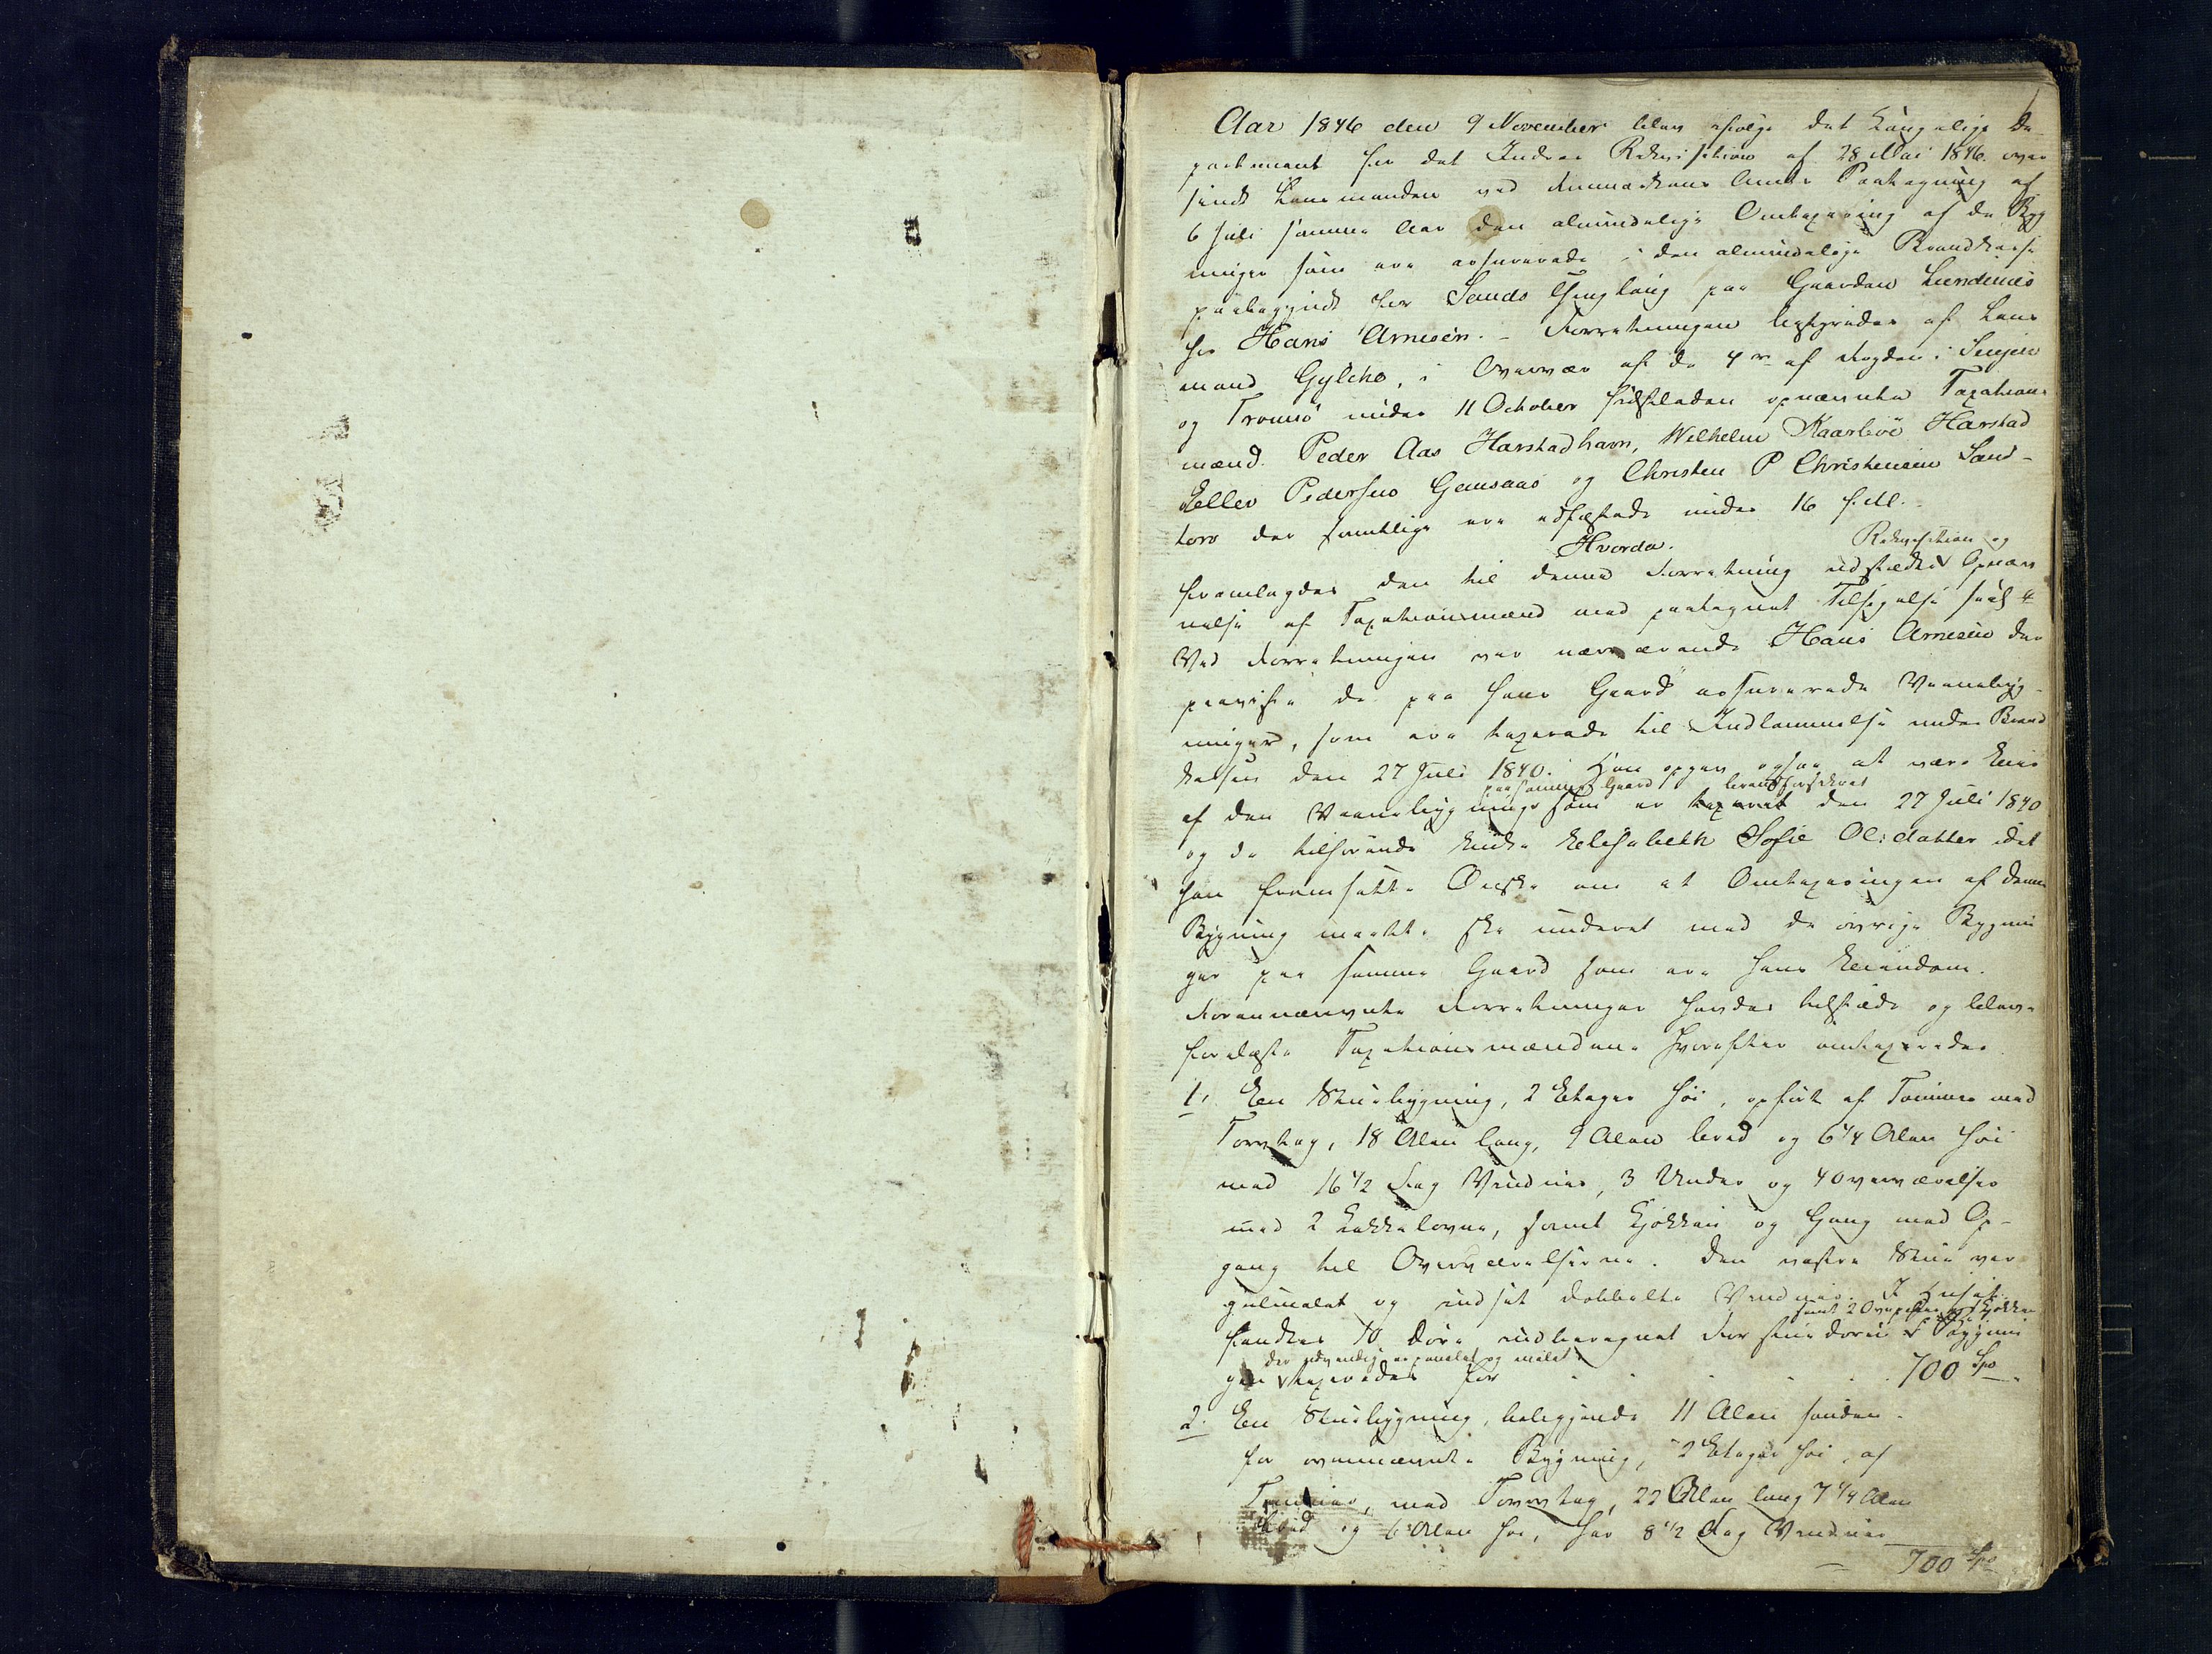 Aar 1846 den 9 November blev ifølge det Kongelige De-
partement for det Indres Rekvisition af 28 Mai 1846. over
sendt Lensmanden ved Finmarkens Amts Paategning af
6 Juli samme Aar den almindelige Omtaxering af de Byg
ninger som ere assurerede i den almindelige Brandkasse
paabegyndt for Sands Thinglaug paa Gaarden Lundenes
hos Hans Arnesen. - Forretningen bestyredes af Lens
mand Gylche, i Overvær af de 4re af Fogden i Senjen
og Tromsø under 11 October sidstleden opnævnte Taxations
mænd. Peder Aas Harstadhavn, Wilhelm Kaarbøe Harstad
Ellev Pedersen Gamsaas og Christen P Christensen Sand-
torv der samtlige ere edfæstede under 16 f. M.
Hvorda. Rekvisition og
fremlagdes den til denne Forretning udstædte Opnæv
nelse af Taxationsmænd med paategnet Tilsigelse
Ved Forretningen var nærværende Hans Arnesen der
paaviste de paa hans Gaard assurerede Vaanebyg-
ninger, som ere taxerede til Indlemmelse under Brand
kassen den 27 Juli 1840. Han opgav ogsaa at være Eier
paa samme Gaard brandforsikret
af den Vaanebygning som er taxeret den 27 Juli 1840
og da tilhørende Enke Elisabeth Sofie Ols:datter idet
han fremsatte Ønske om at Omtaxeringen af denne
Bygning maatte ske underet med de øvrige Bygnin
ger paa samme Gaard som ere hans Eiendom.
Forannævnte Forretninger havdes tilstæde og bleve
forelæste Taxationsmændene hvorefter omtaxeredes
1, En Stuebygning, 2 Etager høi, opført af Tømmer med
Torvtag, 18 Alen lang, 9 Alen bred og 6 1/4 Alen høi
med 16 1/2 Fag Vinduer, 3 Under og 4 Overværelser
med 2 Kakkelovne, samt Kjøkken og Gang med Op-
gang til Overværelserne. Den vestre Stue var
gulmalet og indsat dobbelte Vinduer. I Huset
samt 2 Kjøkken
fandtes 10 Døre indberegnet Forstuedøren Bygnin
der udvendig er panelet og malet
gen taxeredes for . . . . 700 Spd.
2. En Stuebygning, beliggende 11 Alen sønden
for ovennævnte Bygning, 2 Etager høi, af
Tømmer, med Torvtag, 22 Alen lang 7 1/4 Alen
bred og 6 Alen høi, har 8 1/2 Fag Vinduer
= 700 Spd